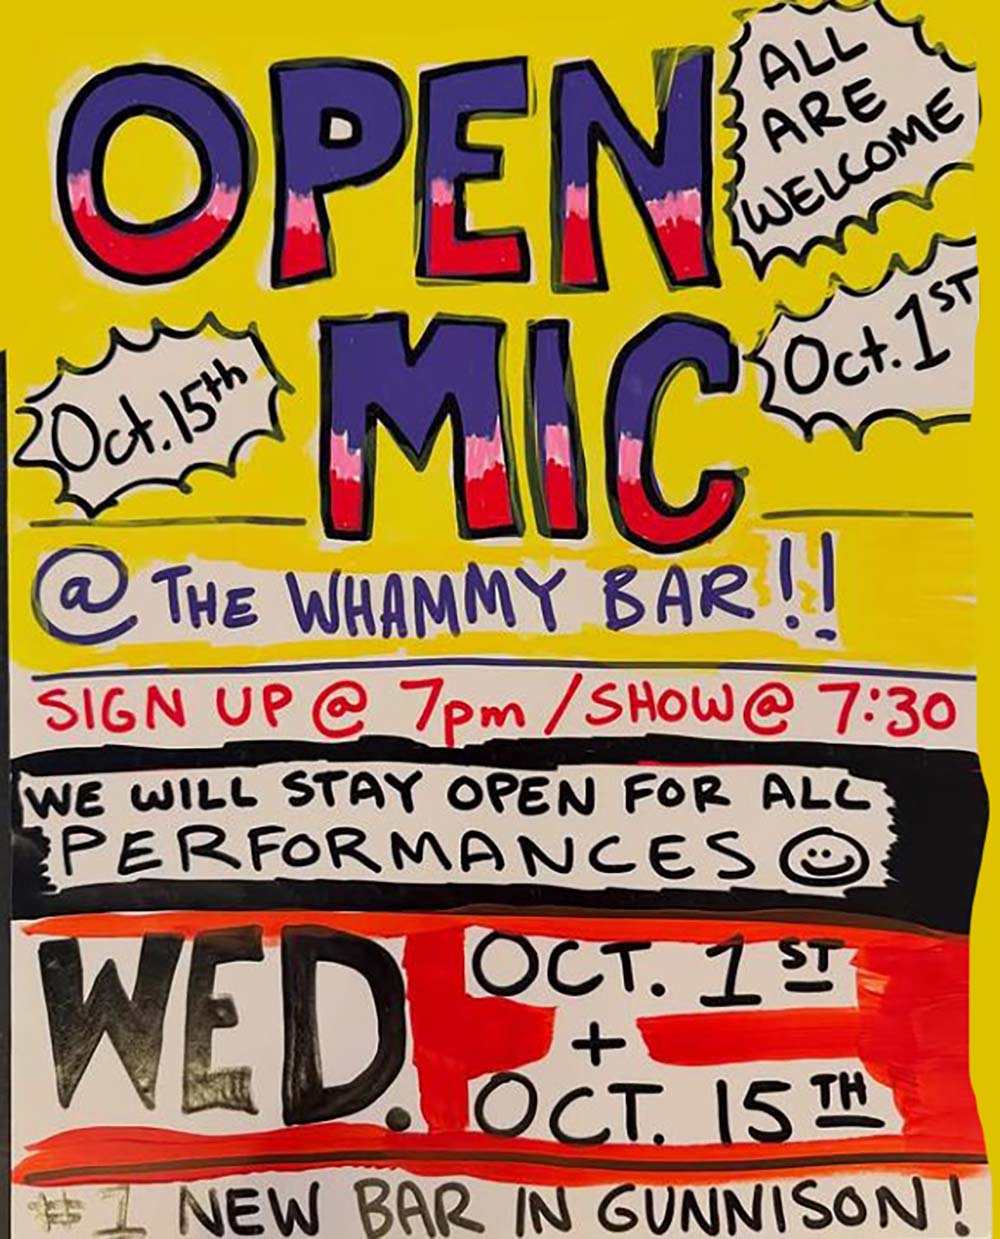 OPEN
MIC
ALL
ARE
WELCOME
Oct. 1ST
Oct. 15th
@ THE WHAMMY BAR!!
SIGN UP @ 7pm / SHOW @ 7:30
WE WILL STAY OPEN FOR ALL
PERFORMANCES
WED.
OCT. 1ST
+
OCT. 15TH
#1 NEW BAR IN GUNNISON!